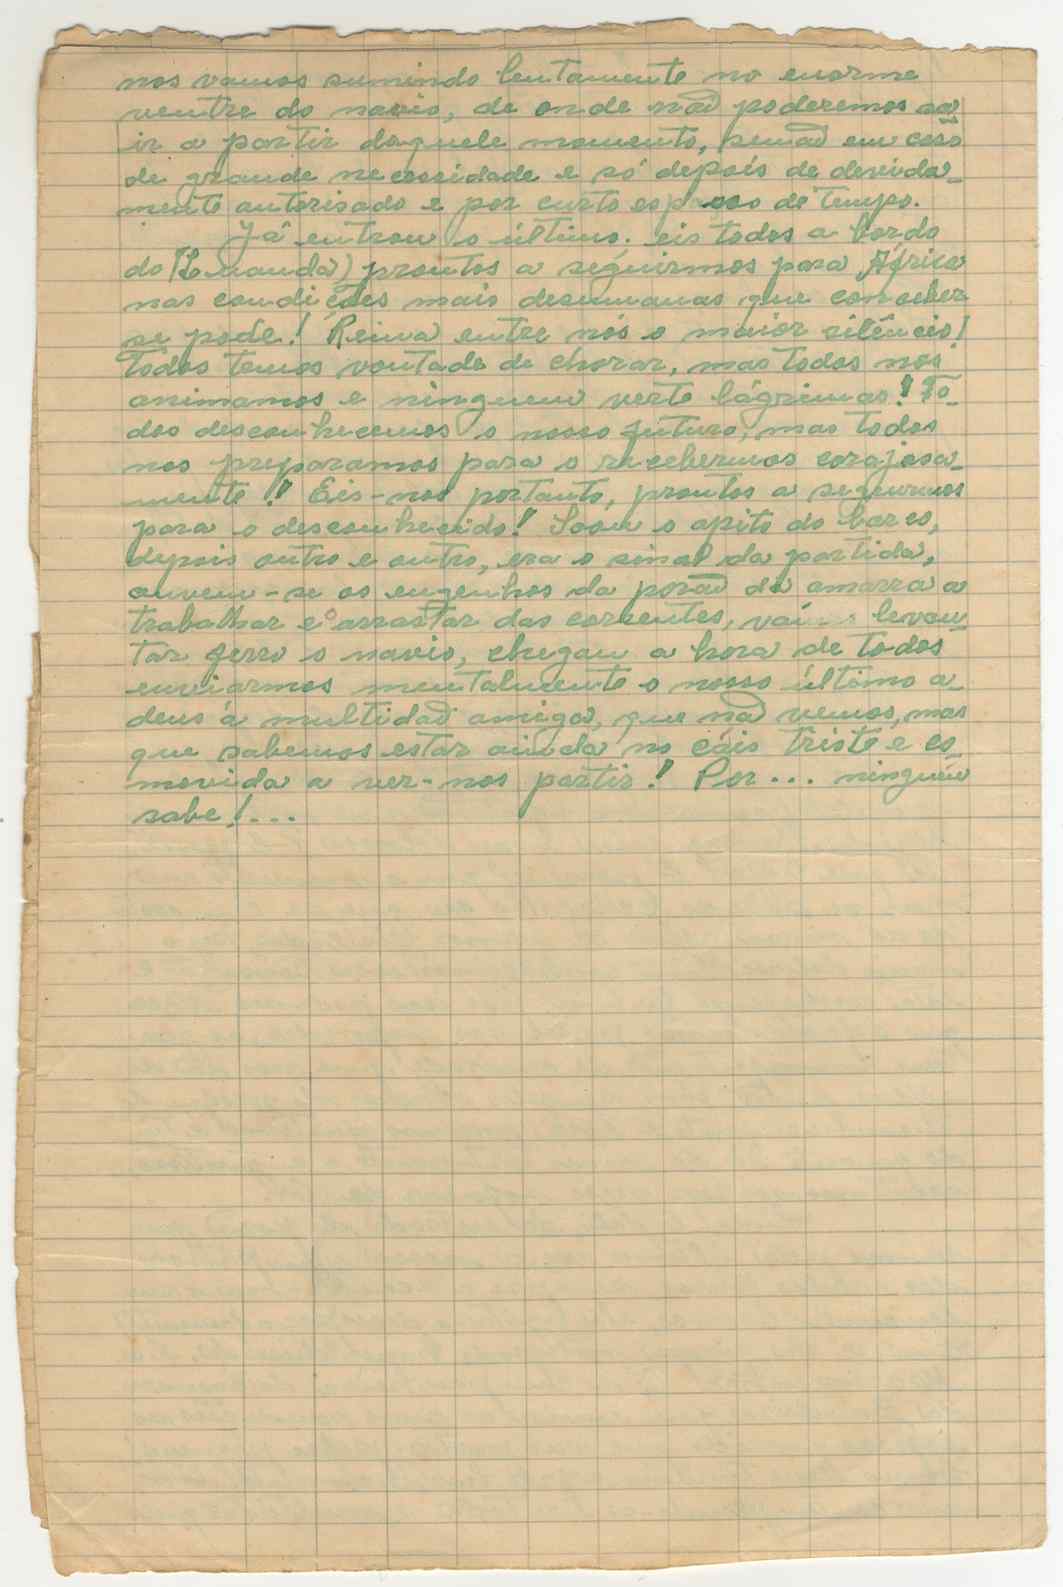 nos vamos sumindo lentamente no enorme
ventre do navio, de onde não poderemos sa
ir a partir daquele momento, senão em caso
de grande necessidade e só depois de devida-
mente autorisado e por curto espaço de tempo.
Já entrou o último. eis todos a bordo
do (Luanda) prontos a seguirmos para África
nas condições mais desumanas que conceber
se pode! Reina entre nós o maior silêncio!
Todos temos vontade de chorar, mas todos nos
animamos e ninguem verte lágrimas! To-
dos desconhecemos o nosso futuro, mas todos
nos preparamos para o recebermos corajosa-
mente! Eis-nos portanto, prontos a seguirmos
para o desconhecido! Soou o apito do barco,
depois outro e outro, era o sinal da partida,
ouvem-se os engenhos da porão da amarra a
trabalhar e o arrastar das correntes, vai levan
tar ferro o navio, chegou a hora de todos
enviarmos mentalmente o nosso último a-
deus á multidão amiga, que não vemos, mas
que sabemos estar ainda no cáis triste e co-
movida a ver-nos partir! Por... ninguém
sabe!...